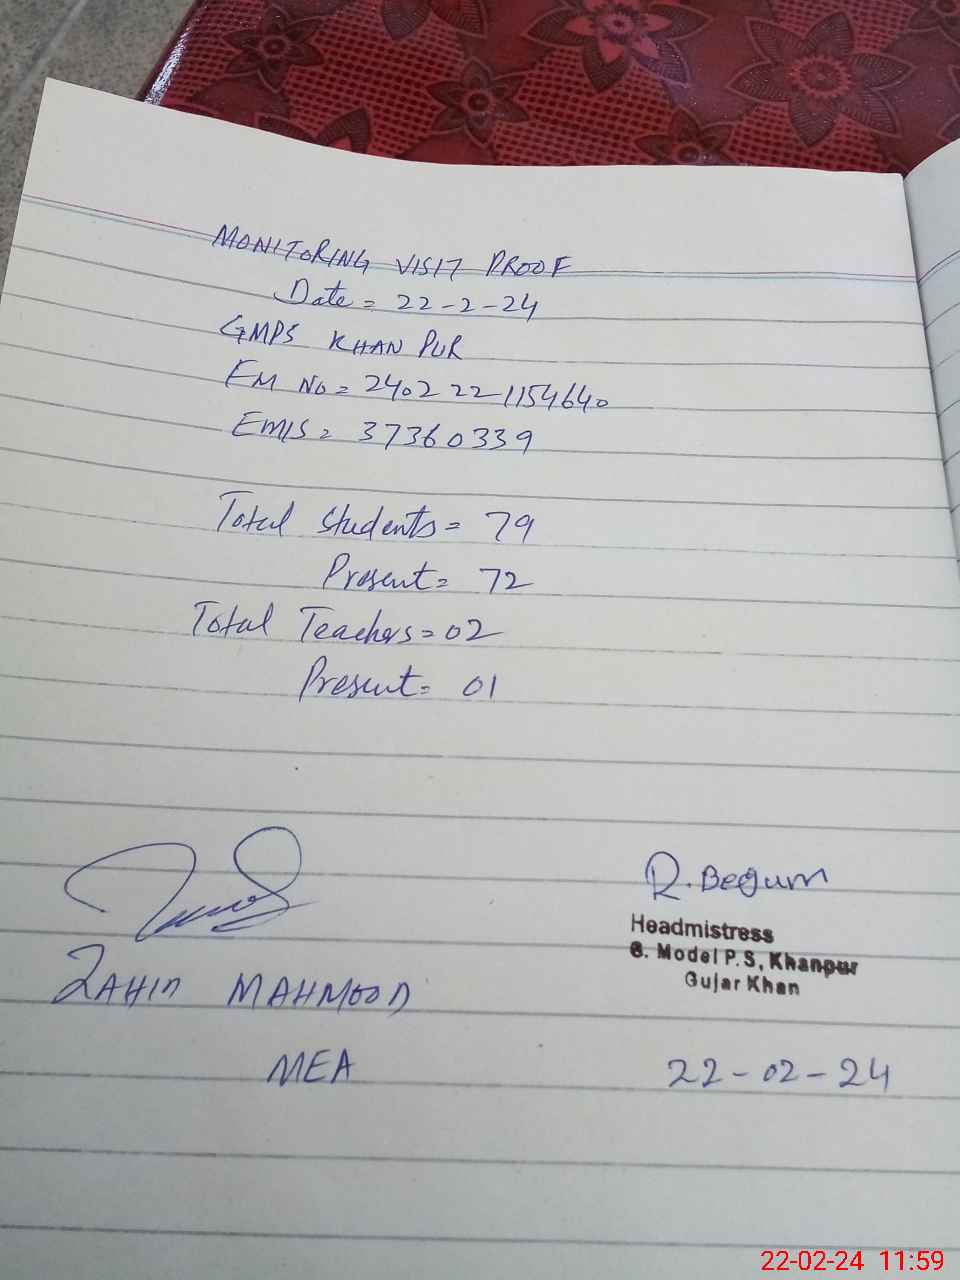 MONITORING VISIT PROOF
Date = 22-2-24
GMPS KHAN PUR
EM No = 240222-1154640
EMIS = 37360339
Total Students = 79
Present = 72
Total Teachers = 02
Present = 01
R. Begum
Headmistress
G. Model P.S, Khanpur
Gujar Khan
ZAHID MAHMOOD
MEA
22-02-24
22-02-24 11:59